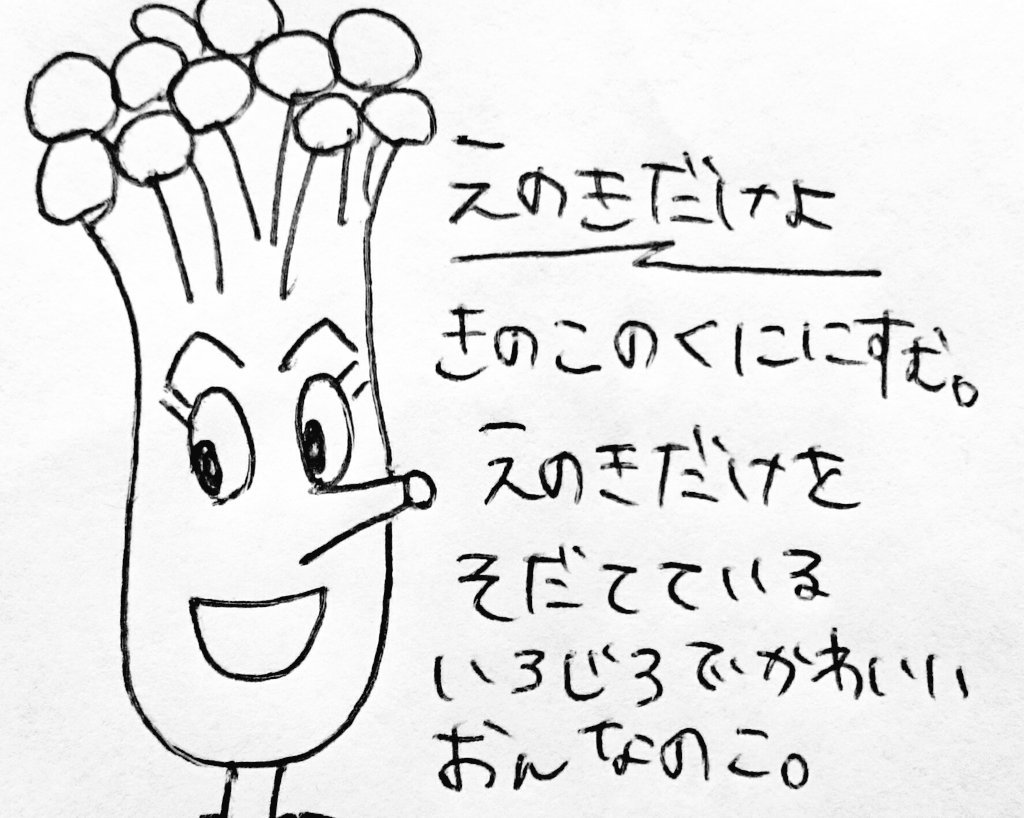 えのきだけよ
きのこのくににすむ。
えのきだけを
そだてている
いろじろでかわいい
おんなのこ。